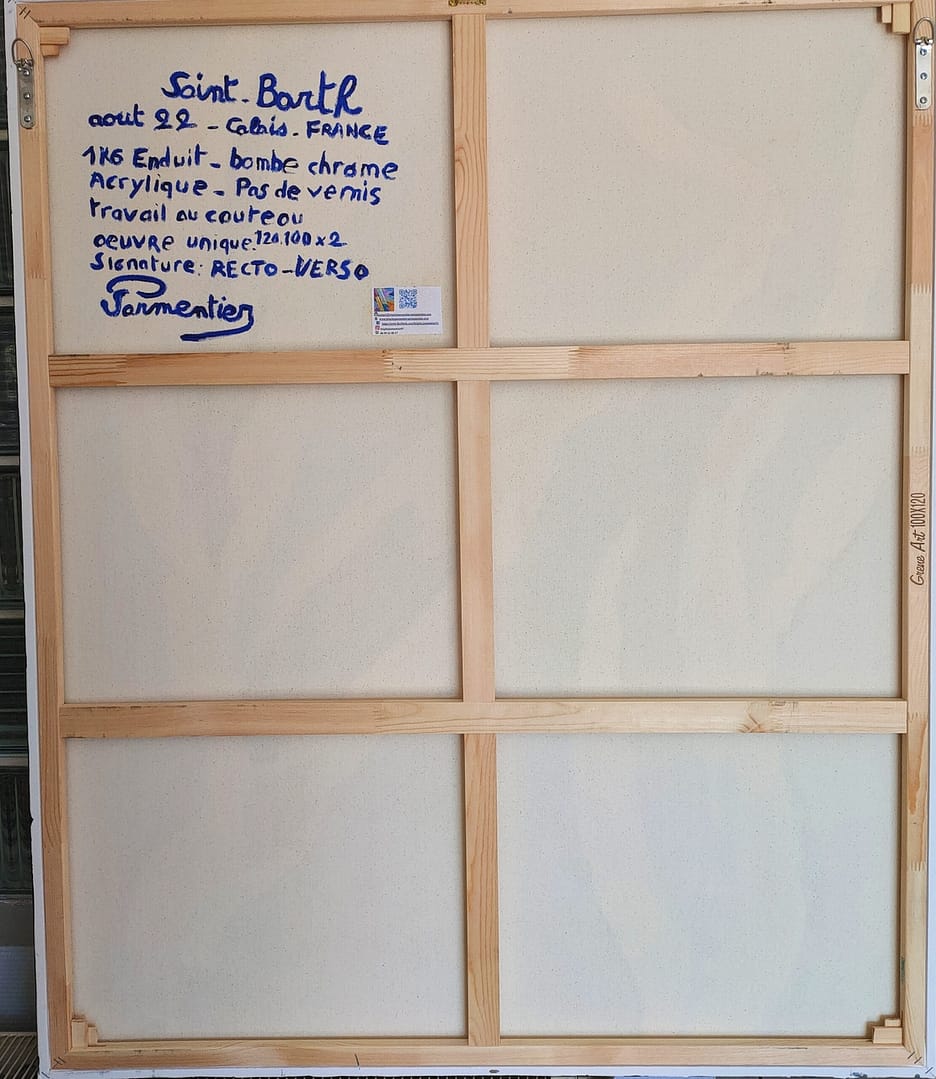 Saint-Barth
aout 22 - Calais - FRANCE
1KG Enduit - bombe chrome
Acrylique - Pas de vernis
travail au couteau
oeuvre unique. 120.100 x 2
Signature: RECTO-VERSO
Parmentier
Grene Art 100X120